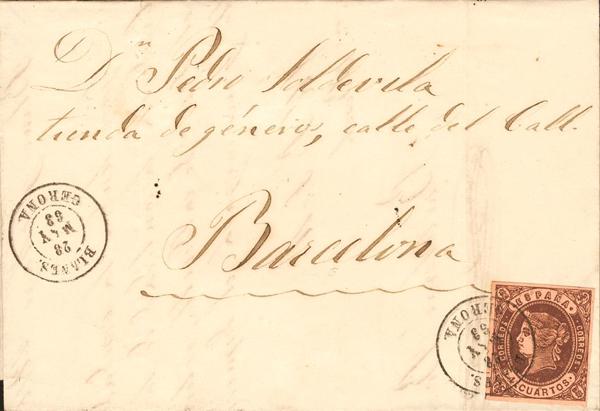 Dn Pedro Soldevila
tienda de géneros, calle del Call.
Barcelona
BLANES.
28
MAY
63
GERONA
ESPAÑA
CORREOS
CORREOS
4 CUARTOS
GERONA
63
MAY